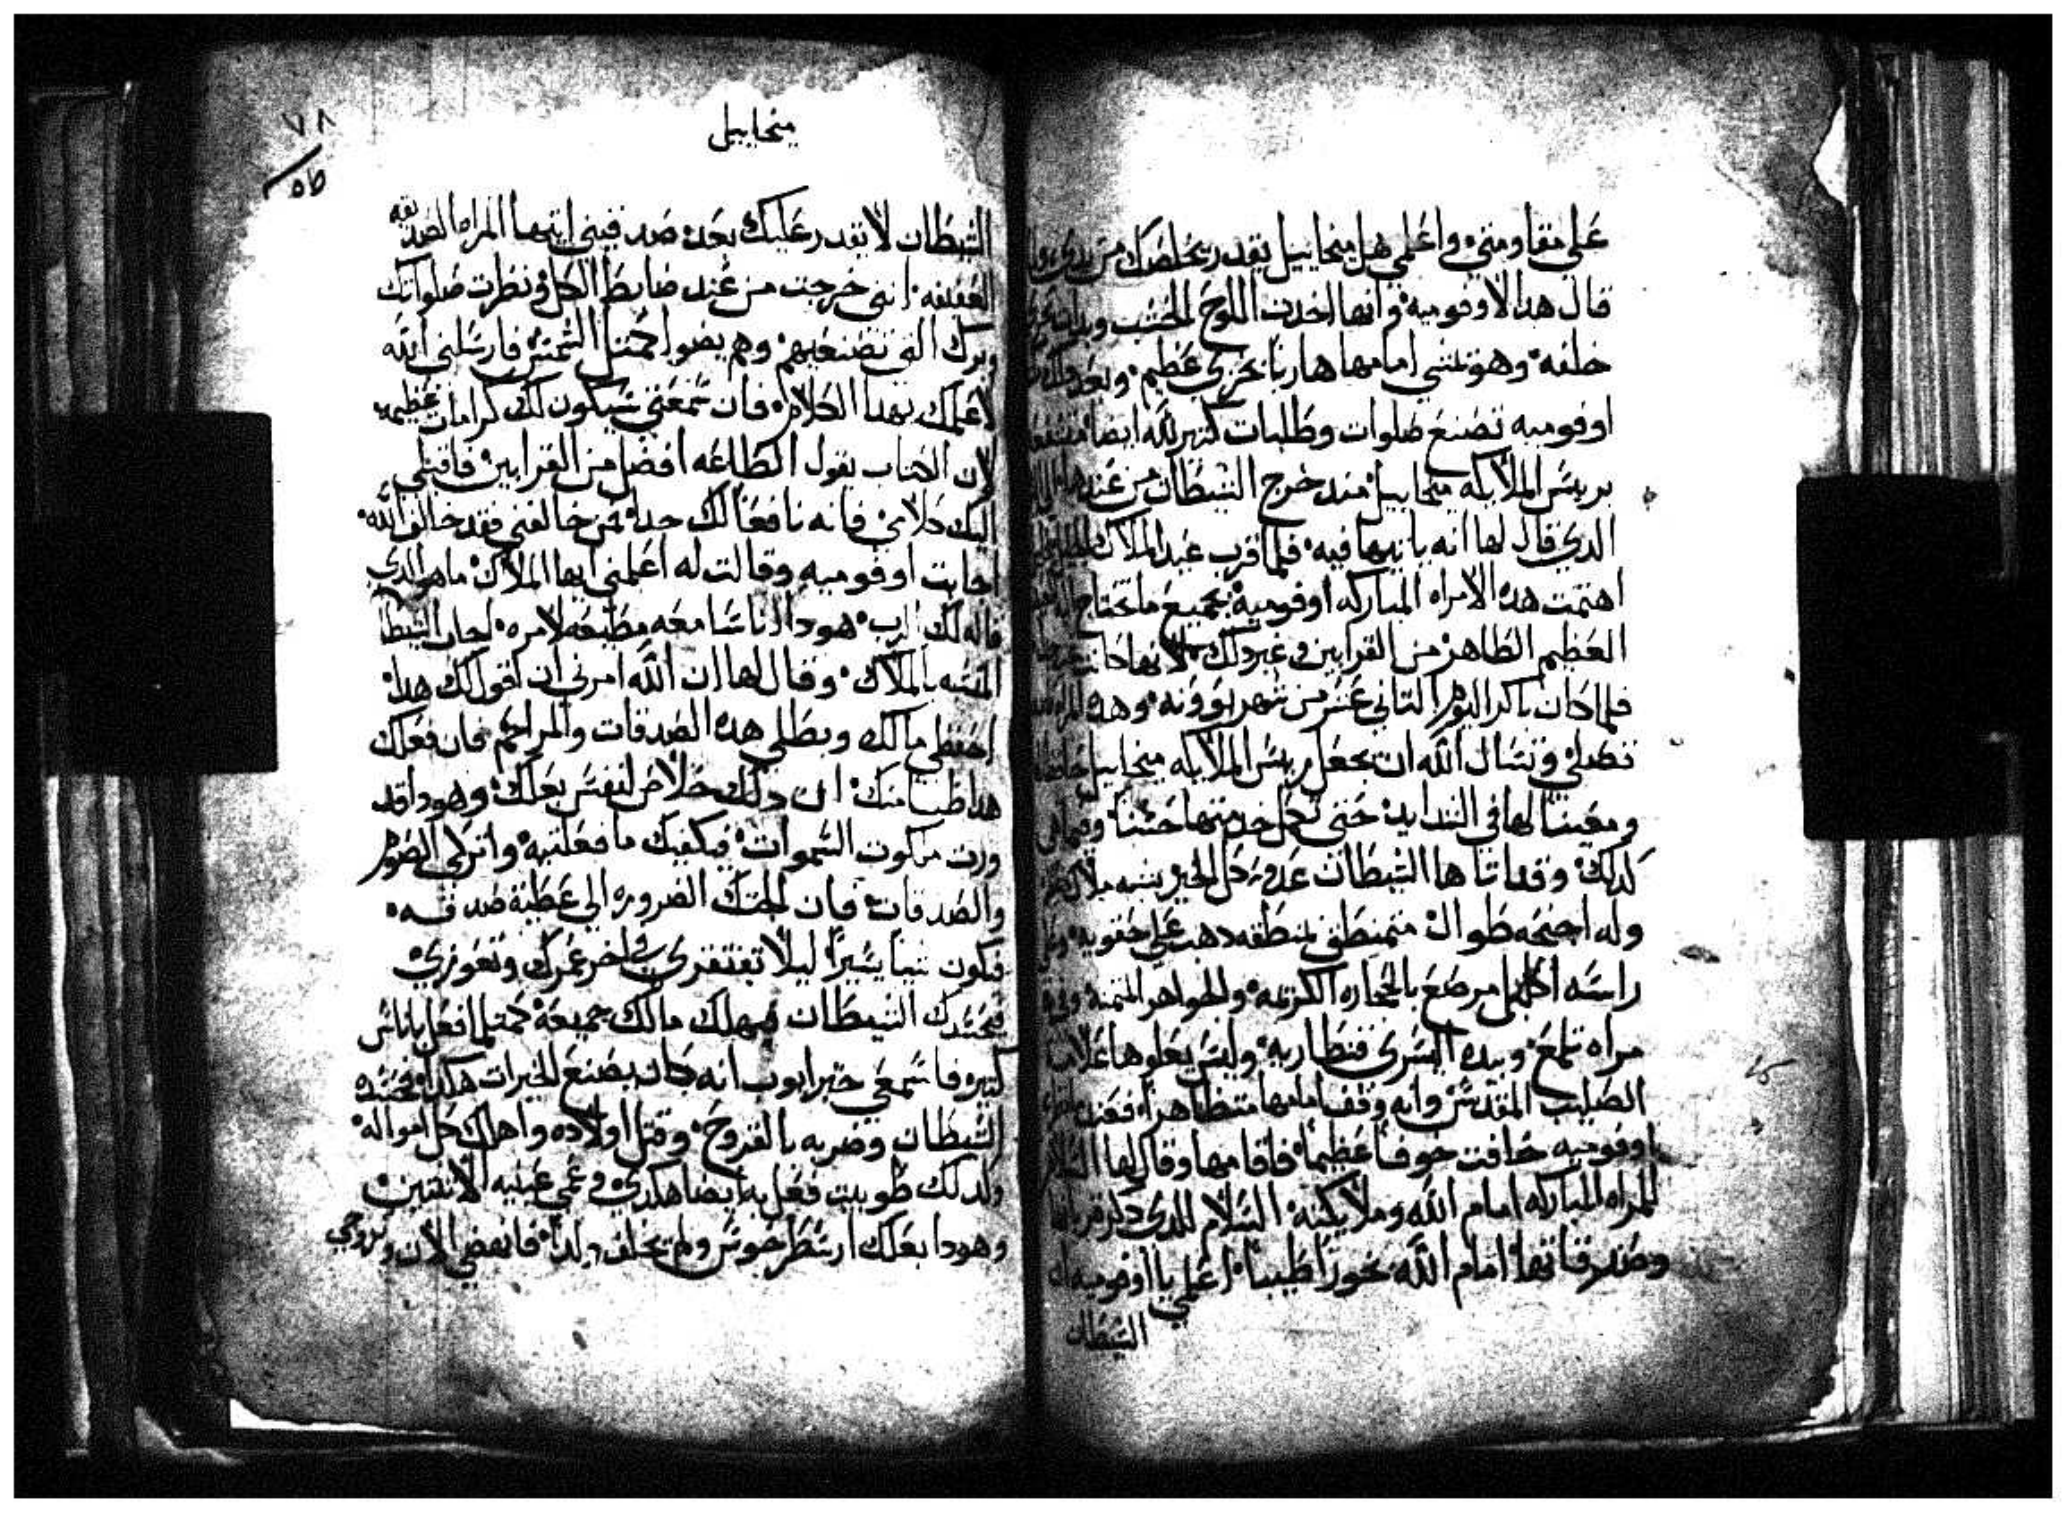 علي مقاومتي واعلمي هل ميخاييل يقدر يخلصك من يدي
قال هدا لاوفوميه وانها اخدت اللوح الخشب
خلفه وهو يمشي امامها هاربا بخزي عظيم وبعد
اوفوميه تصنع صلوات وطلبات كتير لله ايضا
بريس الملايكه ميخاييل مند خرج الشيطان من عندها
الدي قال لها انه ياتيها فيه فلما قرب عيد الملاك
اهتمت هده الامراه المباركه اوفوميه بجميع ما تحتاج
العظيم الطاهر من القرابين وغير دلك لانها كانت
فلما كان باكر اليوم التاني عشر من شهر بوونه وهده المراه
تصلي وتسال الله ان يجعل ريس الملايكه ميخاييل
ومعينا لها في الشدايد حتي تكمل خدمتها حسنا
كدلك وقد اتاها الشيطان عدو كل الخير بشبه ملاك
وله اجنحه طوال متمنطق بمنطقه دهب علي حقويه
راسه اكليل مرصع بالحجاره الكريمه والجواهر المتمنه
مراه تلمع وبيده اليسري قنطاريه وليس يعلوها علامه
الصليب المقدس وانه وقف امامها متظاهرا
اوفوميه خافت خوفا عظيما فاقامها وقال لها السلام
للمراه المباركه امام الله وملايكته السلام للدي
وصدقاتها امام الله بخورا طيبا اعلمي يا اوفوميه ان
الشيطان
ميخاييل
٧٨
الشيطان لا يقدر عليك بعد ايتها المراه الصديقه
العفيفه انني خرجت من عند ضابط الكل ونظرت صلواتك
وبرك التي تصنعيهم وهم يضوا كمتل الشمس فارسلني الله
لاعلمك بهدا الكلام فان سمعتي سيكون لك كرامات عظيمه
لان الكتاب يقول الطاعه افضل من القرابين فاقبلي
اليك كلامي فانه نافعا لك جدا من خالفني فقد خالف الله
اجابت اوفوميه وقالت له اعلمني ايها الملاك ما هو الدي
قاله لك الرب هودا انا سامعه مطيعه لامره اجاب الشيطان
المتشبه بالملاك وقال لها ان الله امرني ان اقول لك هدا
احفظي مالك وبطلي هده الصدقات والمراحم فان فعلك
هدا طيبا منك ان دلك خلاص لنفس بعلك وهودا قد
ورت ملكوت السموات فيكفيك ما فعلتيه واتركي الصوم
والصدقات فان الضروره الي عطية صدقه
فيكون شيا يسيرا ليلا تفتقري في اخر عمرك وتعوزي
فيحسدك الشيطان فيهلك مالك جميعه كمتلما فعل باناس
كتيره فاسمعي خبر ايوب انه كان يصنع الخيرات هكدا فحسده
الشيطان وضربه بالقروح وقتل اولاده واهلك كل امواله
ولدلك طوبيت فعل به ايضا هكدي وعمي عينيه الاتنتين
وهودا بعلك ارسطرخوس ولم يخلف ولدا فانهضي الان وتزوجي